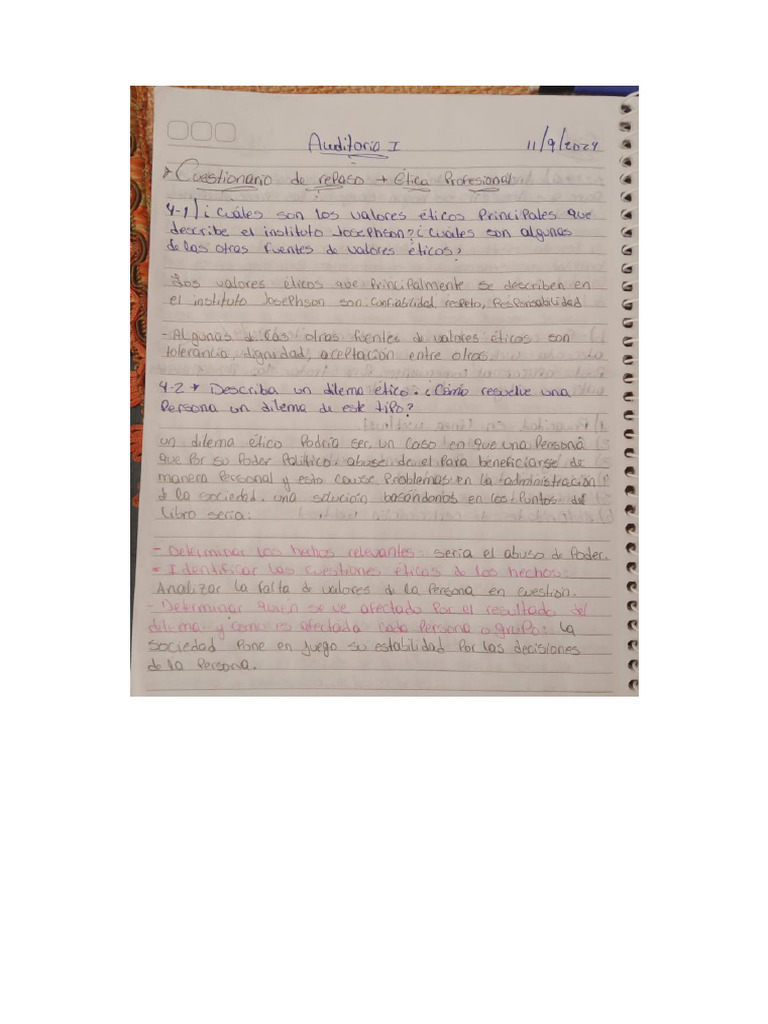 Auditoria I 11/9/2024
* Cuestionario de repaso + ética Profesional
4-1) ¿Cuáles son los valores éticos Principales que
describe el instituto Josephson? ¿Cuales son algunas
de las otras fuentes de valores éticos?
Los valores éticos que Principalmente se describen en
el instituto Josephson son. Confiabilidad, respeto, Responsabilidad
- Algunas de las otras fuentes de valores éticos son
tolerancia, dignidad, aceptación entre otros.
4-2 * Describa un dilema ético. ¿Cómo resuelve una
Persona un dilema de este tipo?
un dilema ético Podría ser un caso en que una Persona
que Por su Poder Político, abuse de el Para beneficiarse de
manera Personal y esto cause Problemas en la administración
de la sociedad. una solución basándonos en los Puntos del
Libro seria:
- Determinar los hechos relevantes: seria el abuso de Poder.
- Identificar las cuestiones éticas de los hechos:
Analizar la falta de valores de la Persona en cuestión.
- Determinar quien se ve afectado Por el resultado del
dilema y como es afectada cada Persona o grupo: La
sociedad Pone en juego su estabilidad Por las decisiones
de la Persona.